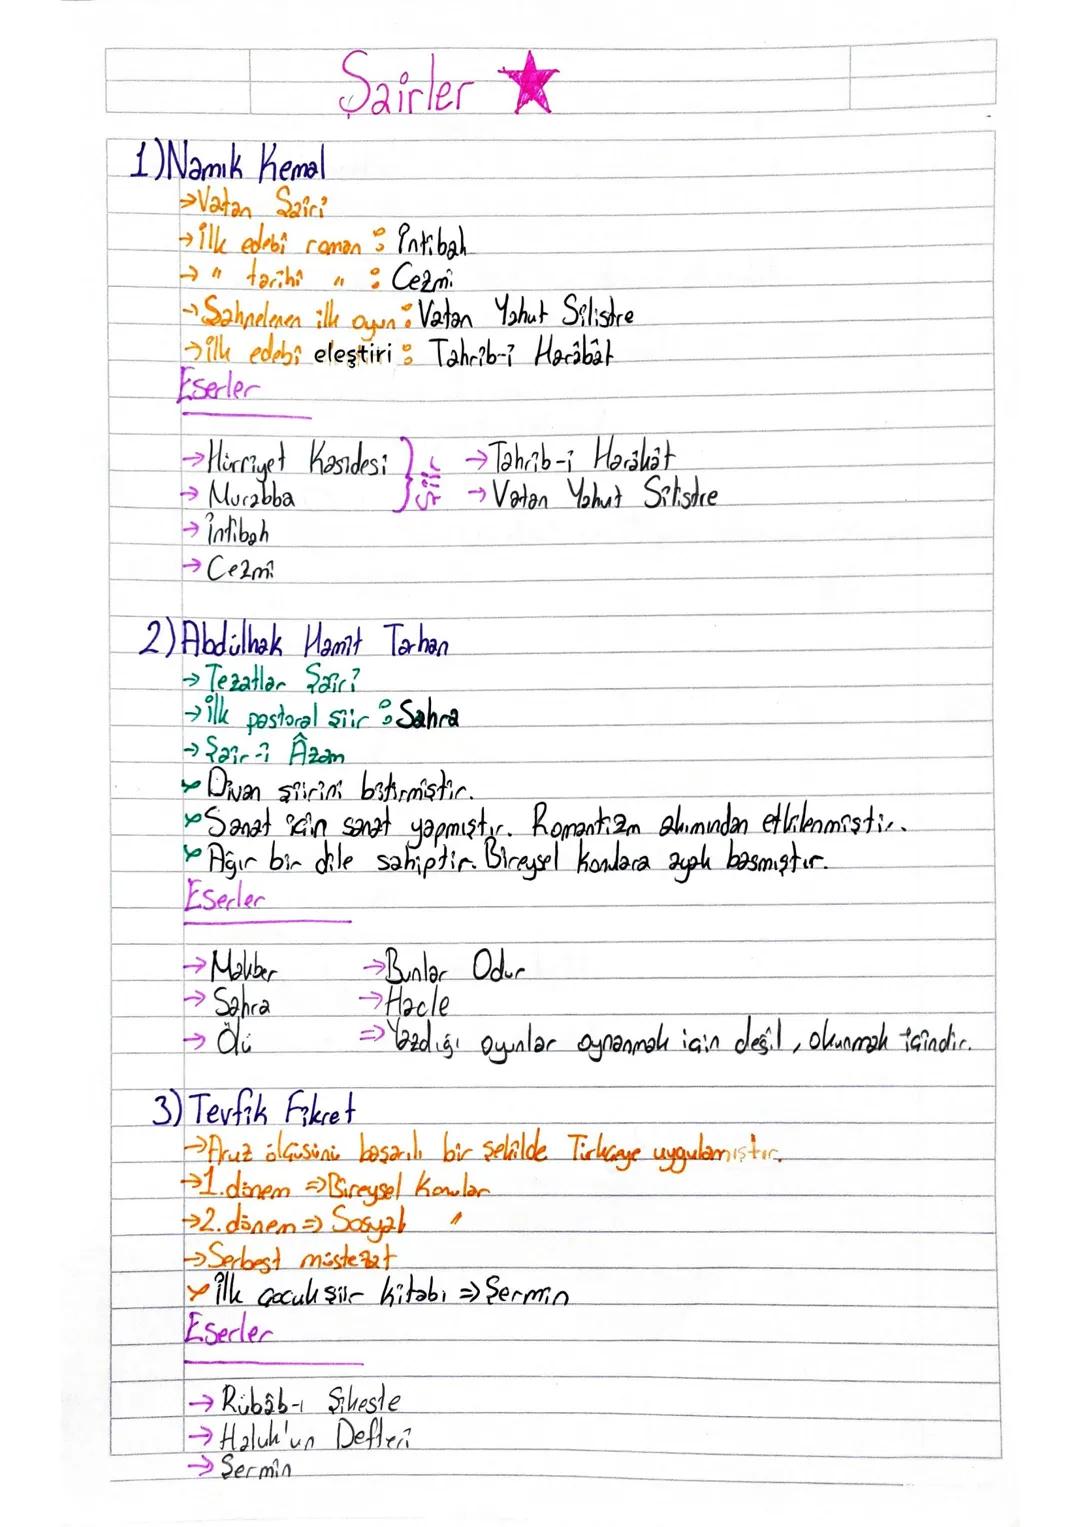 Şairler
1) Namık Kemal
→ Vatan Şairi
→ ilk edebî roman : İntibah
→ " tarihî " : Cezmi
→ Sahnelenen ilk oyun : Vatan Yahut Silistre
→ ilk edebî eleştiri : Tahrib-i Harâbât
Eserler
→ Hürriyet Kasidesi } şiir → Tahrib-i Harâbât
→ Murabba → Vatan Yahut Silistre
→ İntibah
→ Cezmi
2) Abdülhak Hamit Tarhan
→ Tezatlar Şairi
→ ilk pastoral şiir : Sahra
→ Şair-i Âzam
Divan şiirini bitirmiştir.
Sanat için sanat yapmıştır. Romantizm akımından etkilenmiştir.
Ağır bir dile sahiptir. Bireysel konulara ayak basmıştır.
Eserler
→ Makber → Bunlar Odur
→ Sahra → Hacle
→ Ölü ⇒ Yazdığı oyunlar oynanmak için değil, okunmak içindir.
3) Tevfik Fikret
→ Aruz ölçüsünü başarılı bir şekilde Türkçeye uygulamıştır.
→ 1. dönem ⇒ Bireysel Konular
→ 2. dönem ⇒ Sosyal "
→ Serbest müstezat
ilk çocuk şiir kitabı ⇒ Şermin
Eserler
→ Rübâb-ı Şikeste
→ Haluk'un Defteri
→ Şermin